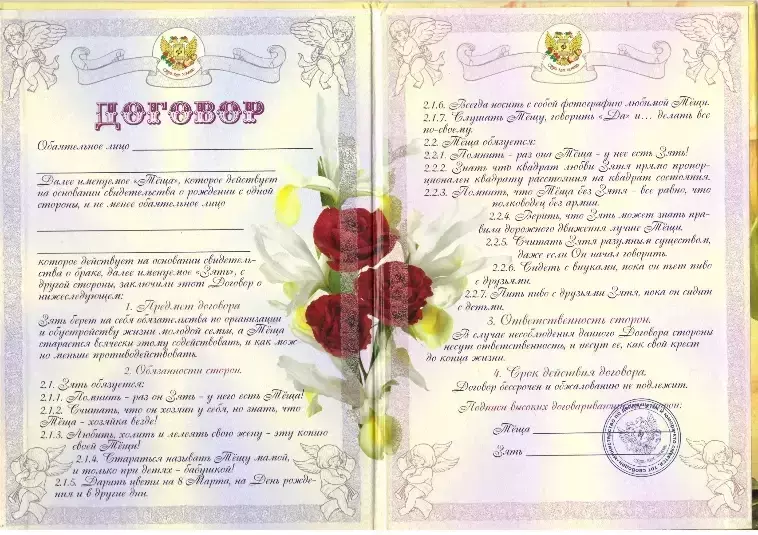 ДОГОВОР
Обаятельное лицо
Далее именуемое «Тёща», которое действует
на основании свидетельства о рождении с одной
стороны, и не менее обаятельное лицо
которое действует на основании свидетельст-
ва о браке, далее именуемое «Зять», с
другой стороны, заключили этот Договор о
нижеследующем:
1. Предмет договора
Зять берет на себя обязательства по организации
и обустройству жизни молодой семьи, а Тёща
старается всячески этому содействовать, и как мож-
но меньше противодействовать.
2. Обязанности сторон.
2.1. Зять обязуется:
2.1.1. Помнить - раз он Зять - у него есть Тёща!
2.1.2. Считать, что он хозяин у себя, но знать, что
Тёща - хозяйка везде!
2.1.3. Любить, холить и лелеять свою жену - эту копию
своей Тёщи!
2.1.4. Стараться называть Тёщу мамой,
и только при детях - бабушкой!
2.1.5. Дарить цветы на 8 Марта, на День рожде-
ния и в другие дни.
2.1.6. Всегда носить с собой фотографию любимой Тёщи.
2.1.7. Слушать Тёщу, говорить «Да» и... делать все
по-своему.
2.2. Тёща обязуется:
2.2.1. Помнить - раз она Тёща - у нее есть Зять!
2.2.2. Знать что квадрат любви Зятя прямо пропор-
ционален квадрату расстояния на квадрат состояния.
2.2.3. Помнить, что Тёща без Зятя - все равно, что
полководец без армии.
2.2.4. Верить, что Зять может знать пра-
вила дорожного движения лучше Тёщи.
2.2.5. Считать Зятя разумным существом,
даже если Он начал говорить.
2.2.6. Сидеть с внуками, пока он пьет пиво
с друзьями.
2.2.7. Пить пиво с друзьями Зятя, пока он сидит
с детьми.
3. Ответственность сторон.
В случае несоблюдения данного Договора стороны
несут ответственность, и несут ее, как свой крест
до конца жизни.
4. Срок действия договора.
Договор бессрочен и обжалованию не подлежит.
Подписи высоких договаривающихся сторон:
Тёща
Зять